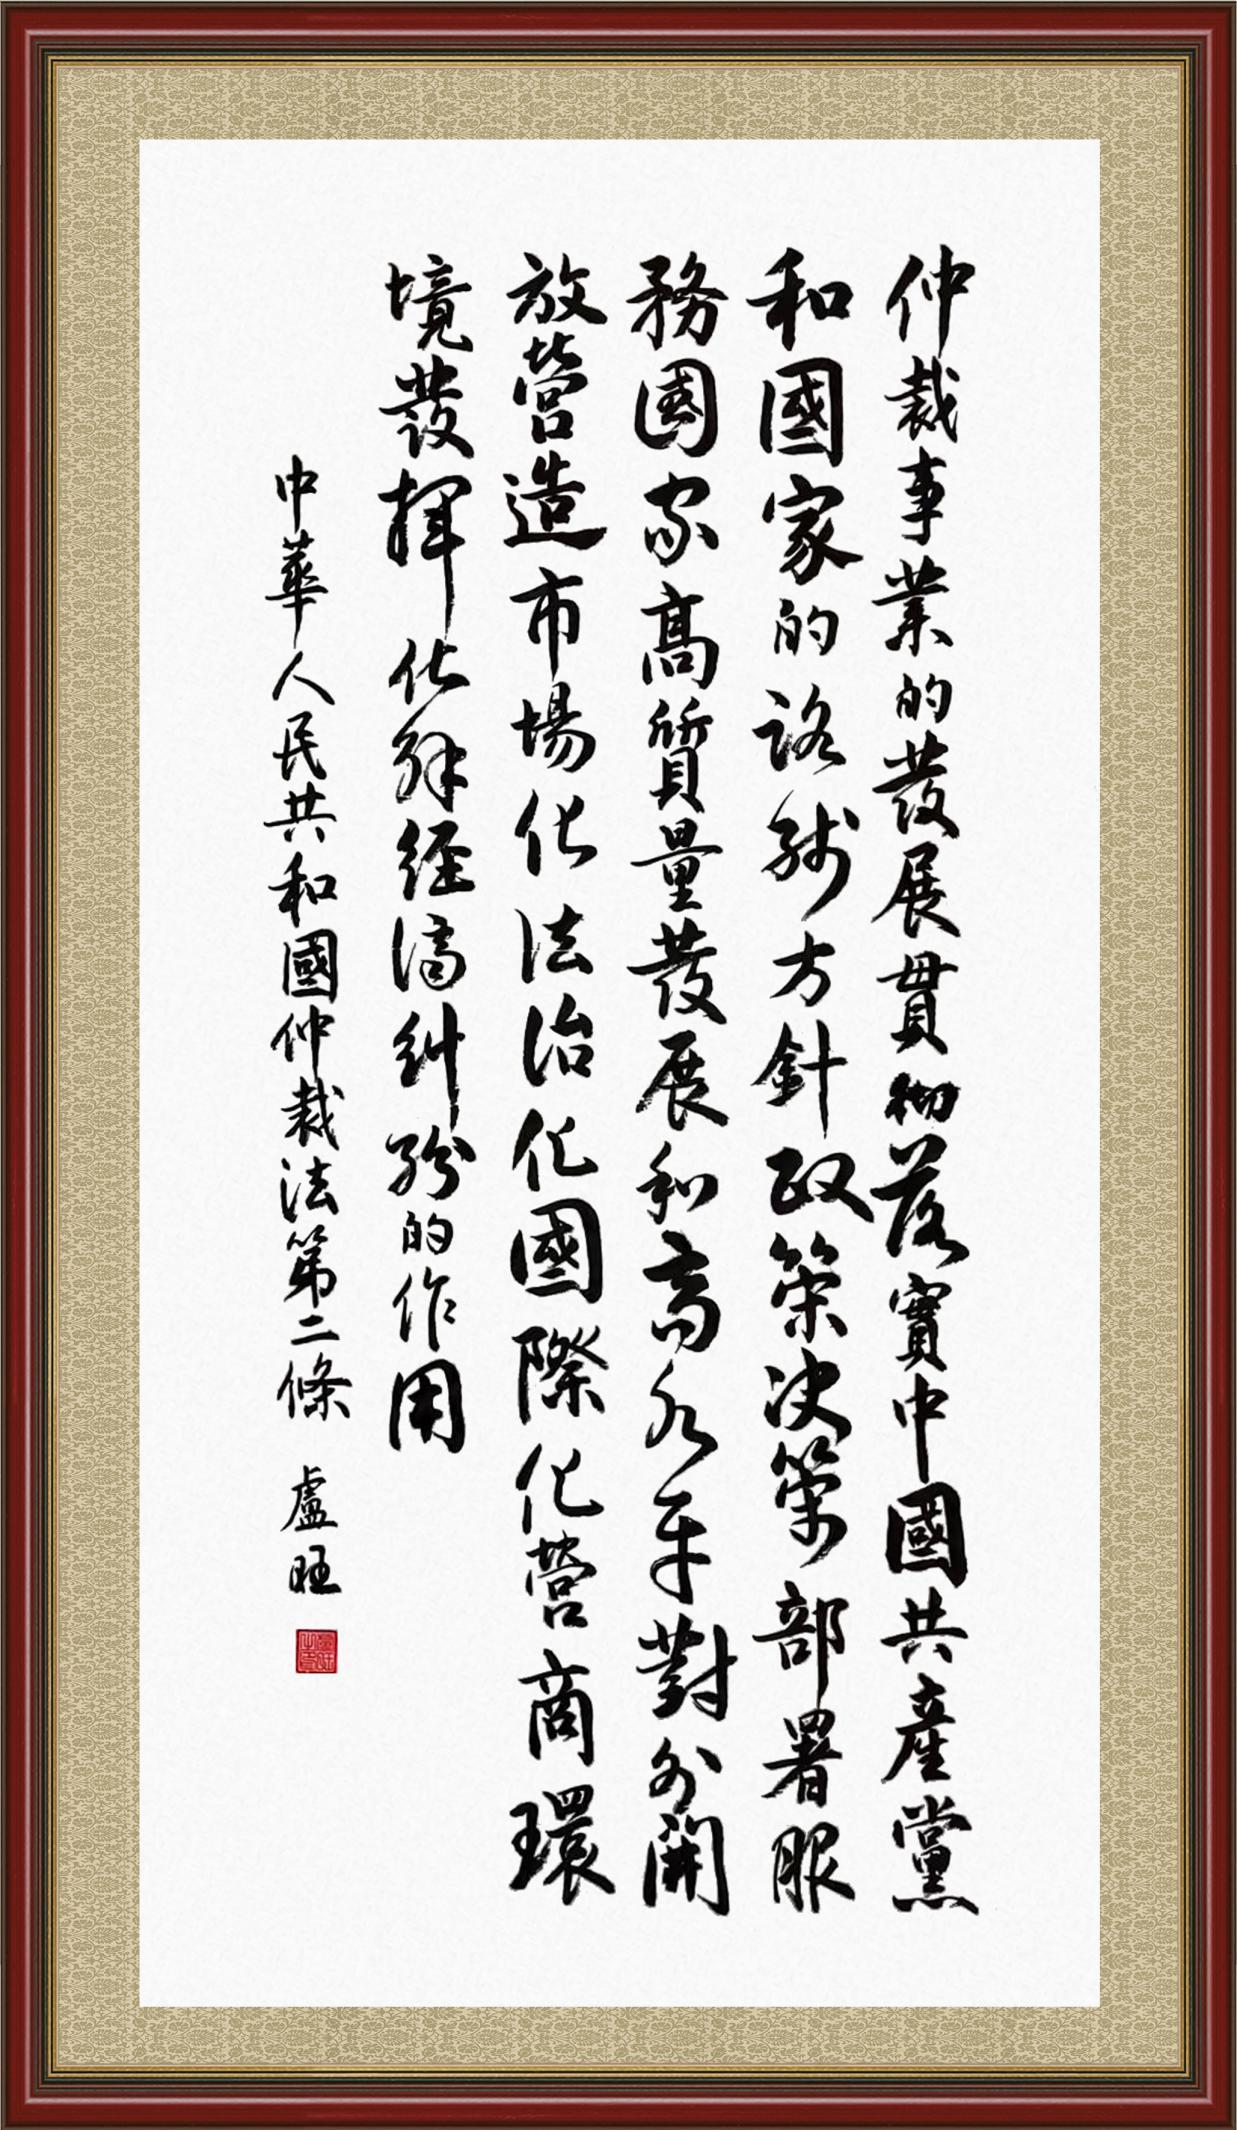 仲裁事業的發展貫彻落實中國共產黨
和國家的路线方針政策决策部署服
務國家高質量發展和高水平對外開
放營造市場化法治化國際化營商環
境發揮化解經濟糾紛的作用
中華人民共和國仲裁法第二條 盧旺